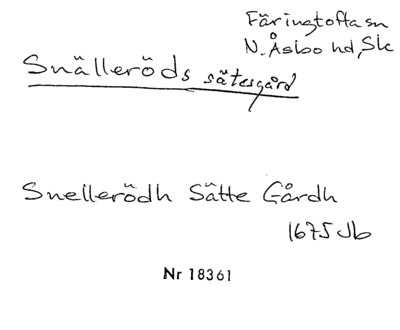 Färingtofta sn
N. Åsbo hd, Sk
Snälleröds sätesgård
Snellerödh Sätte Gårdh
1675 Jb
Nr 18361